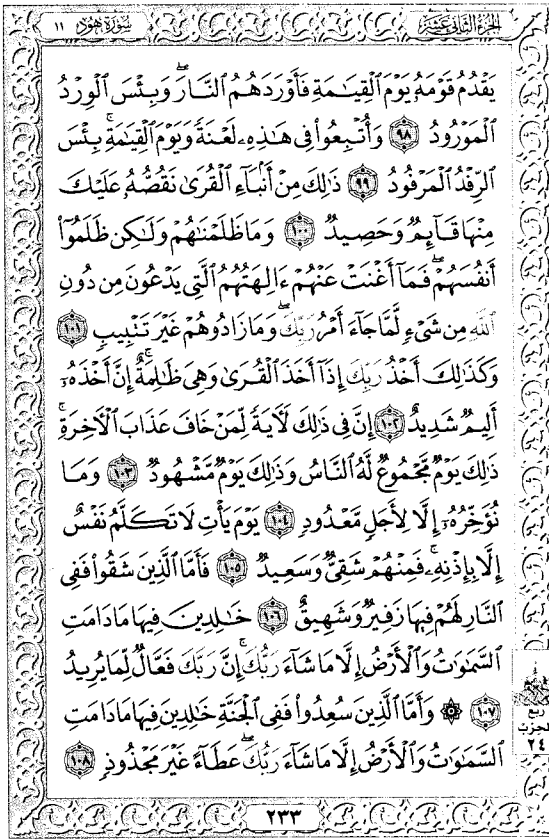 الجزء الثاني عشر سورة هود ١١
يَقْدُمُ قَوْمَهُۥ يَوْمَ ٱلْقِيَٰمَةِ فَأَوْرَدَهُمُ ٱلنَّارَ ۖ وَبِئْسَ ٱلْوِرْدُ
ٱلْمَوْرُودُ ٩٨ وَأُتْبِعُوا۟ فِى هَٰذِهِۦ لَعْنَةً وَيَوْمَ ٱلْقِيَٰمَةِ ۚ بِئْسَ
ٱلرِّفْدُ ٱلْمَرْفُودُ ٩٩ ذَٰلِكَ مِنْ أَنۢبَآءِ ٱلْقُرَىٰ نَقُصُّهُۥ عَلَيْكَ
مِنْهَا قَآئِمٌ وَحَصِيدٌ ١٠٠ وَمَا ظَلَمْنَٰهُمْ وَلَٰكِن ظَلَمُوٓا۟
أَنفُسَهُمْ ۖ فَمَآ أَغْنَتْ عَنْهُمْ ءَالِهَتُهُمُ ٱلَّتِى يَدْعُونَ مِن دُونِ
ٱللَّهِ مِن شَىْءٍ لَّمَّا جَآءَ أَمْرُ رَبِّكَ ۖ وَمَا زَادُوهُمْ غَيْرَ تَتْبِيبٍ ١٠١
وَكَذَٰلِكَ أَخْذُ رَبِّكَ إِذَآ أَخَذَ ٱلْقُرَىٰ وَهِىَ ظَٰلِمَةٌ ۚ إِنَّ أَخْذَهُۥٓ
أَلِيمٌ شَدِيدٌ ١٠٢ إِنَّ فِى ذَٰلِكَ لَءَايَةً لِّمَنْ خَافَ عَذَابَ ٱلْءَاخِرَةِ ۚ
ذَٰلِكَ يَوْمٌ مَّجْمُوعٌ لَّهُ ٱلنَّاسُ وَذَٰلِكَ يَوْمٌ مَّشْهُودٌ ١٠٣ وَمَا
نُؤَخِّرُهُۥٓ إِلَّا لِأَجَلٍ مَّعْدُودٍ ١٠٤ يَوْمَ يَأْتِ لَا تَكَلَّمُ نَفْسٌ
إِلَّا بِإِذْنِهِۦ ۚ فَمِنْهُمْ شَقِىٌّ وَسَعِيدٌ ١٠٥ فَأَمَّا ٱلَّذِينَ شَقُوا۟ فَفِى
ٱلنَّارِ لَهُمْ فِيهَا زَفِيرٌ وَشَهِيقٌ ١٠٦ خَٰلِدِينَ فِيهَا مَا دَامَتِ
ٱلسَّمَٰوَٰتُ وَٱلْأَرْضُ إِلَّا مَا شَآءَ رَبُّكَ ۚ إِنَّ رَبَّكَ فَعَّالٌ لِّمَا يُرِيدُ
١٠٧ ۞ وَأَمَّا ٱلَّذِينَ سُعِدُوا۟ فَفِى ٱلْجَنَّةِ خَٰلِدِينَ فِيهَا مَا دَامَتِ
ٱلسَّمَٰوَٰتُ وَٱلْأَرْضُ إِلَّا مَا شَآءَ رَبُّكَ ۖ عَطَآءً غَيْرَ مَجْذُوذٍ ١٠٨
ربع
الحزب
٢٤
٢٣٣